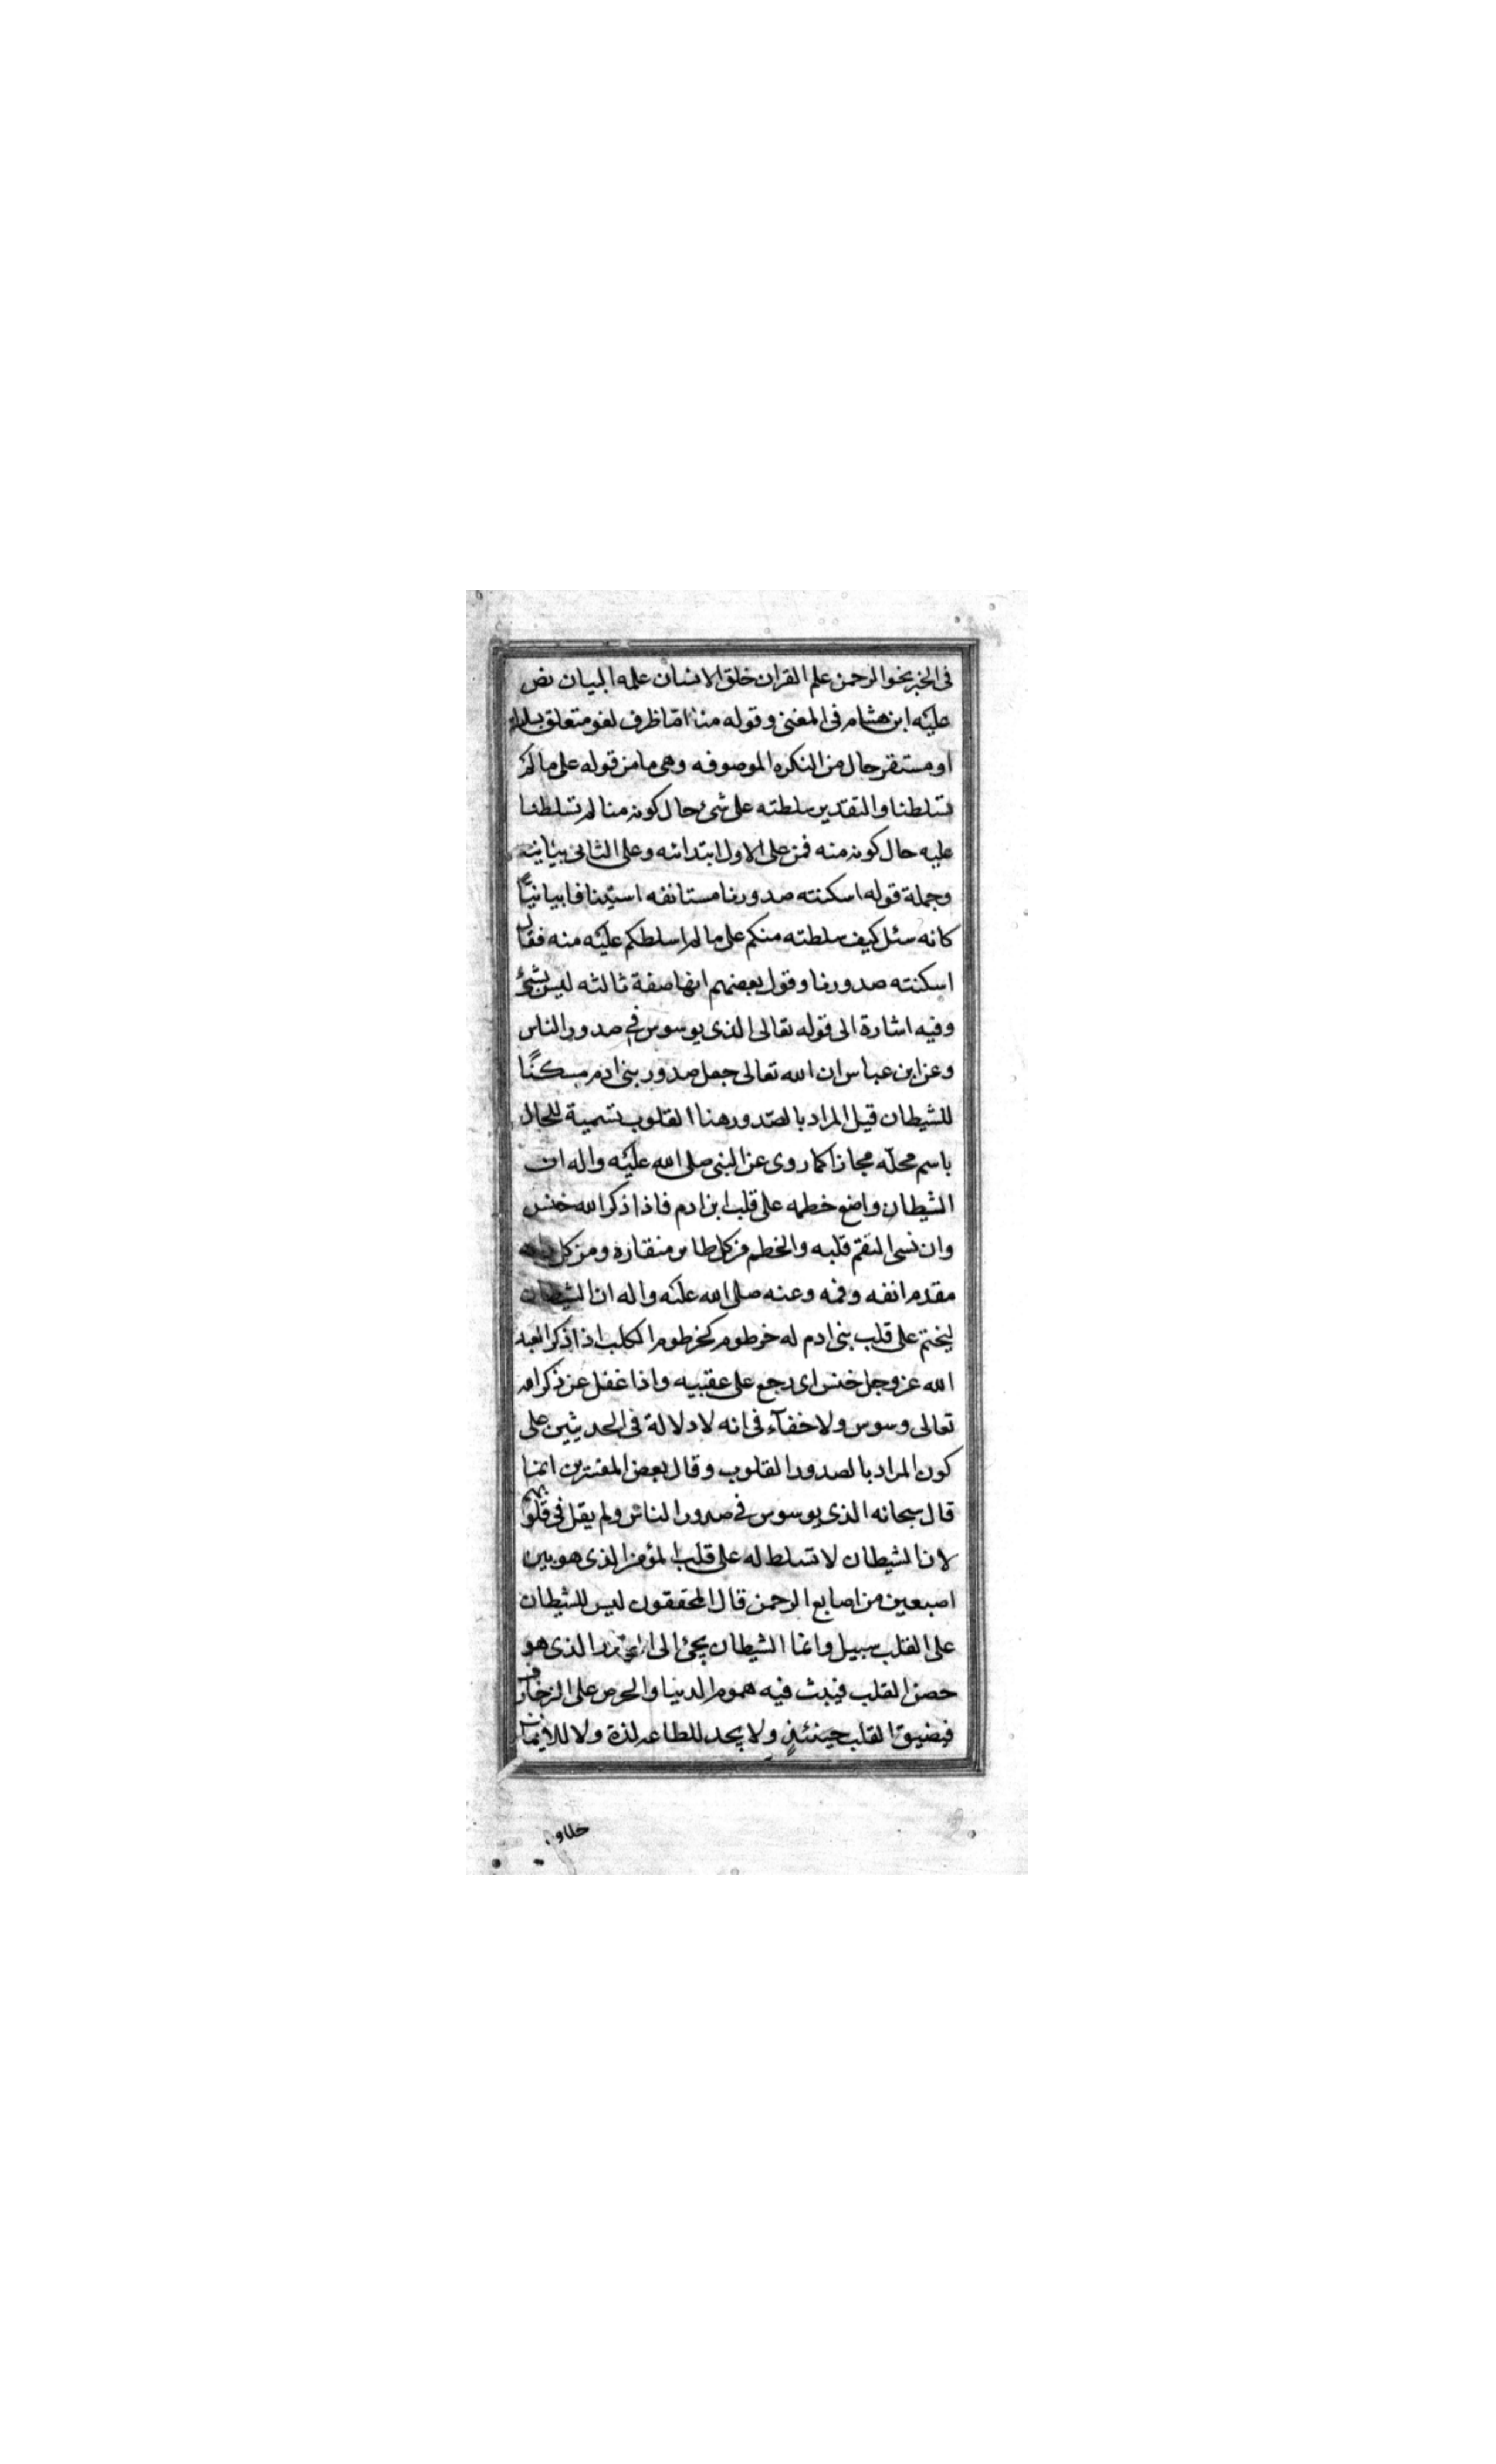 فى الخبر نحو الرحمن علم القران خلق الانسان علمه البيان نص
عليه ابن هشام فى المغنى وقوله منا امّا ظرف لغو متعلق بسلطته
او مستقر حال من النكره الموصوفه وهى ما من قوله على ما لم
تسلطنا والتقدير سلطته على شئ حال كونه منا لم تسلطنا
عليه حال كونه منه فمن على الاول ابتدائه وعلى الثانى بيانيه
وجملة قوله اسكنته صدورنا مستانفه استينافا بيانيًّا
كانه سئل كيف سلطته منكم على ما لم اسلطكم عليه منه فقال
اسكنته صدورنا وقول بعضهم انها صفة ثالثه ليس بشئ
وفيه اشارة الى قوله تعالى الذى يوسوس فى صدور الناس
وعن ابن عباس ان الله تعالى جعل صدور بنى ادم مسكنًا
للشيطان قيل المراد بالصّدور هنا القلوب تسمية للحال
باسم محلّه مجازا كما روى عن النبى صلى الله عليه واله ان
الشيطان واضع خطمه على قلب ابن ادم فاذا ذكر الله خنس
وان نسى التقم قلبه والخطم من كل طائر منقاره ومن كل
مقدم انفه وفمه وعنه صلى الله عليه واله ان الشيطان
ليختم على قلب بنى ادم له خرطوم كخرطوم الكلب اذا ذكر العبد
الله عز وجل خنس اى رجع على عقبيه واذا غفل عن ذكر الله
تعالى وسوس ولا خفآء فى انه لا دلالة فى الحديثين على
كون المراد بالصدور القلوب وقال بعض المفسرين انما
قال سبحانه الذى يوسوس فى صدور الناس ولم يقل فى قلوبهم
لان الشيطان لا تسلط له على قلب المؤمن الذى هو بين
اصبعين من اصابع الرحمن قال المحققون ليس للشيطان
على القلب سبيل وانما الشيطان يجئ الى الذى هو
حصن القلب فيبث فيه هموم الدنيا والحرص على الزخارف
فيضيق القلب حينئذٍ ولا يجد للطاعه لذة ولا للايمان
حلاوه